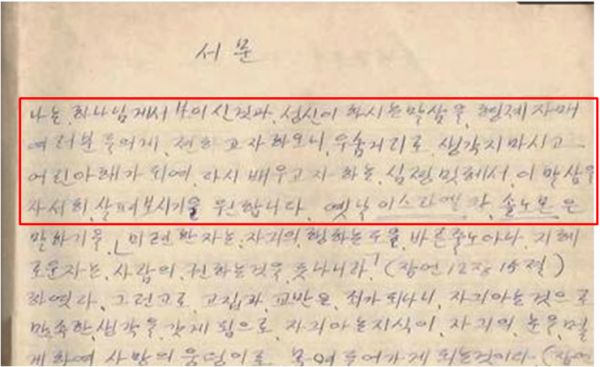 서문
나는, 하나님게서 보이신것과, 성신이 하시는말삼을, 형제 자매
여러분들의게, 전하고자하오니, 우숨거리로 생각지마시고
어린아해가 되여, 다시 배우고자 하는, 심정밋헤서, 이 말삼을
자서히, 살펴보시기을 원합니다. 옛날 이스라엘 왕, 솔노몬은
말하기을, 「미련한자는, 자긔의 행하는도을, 바른줄노아나, 지혜
로운자는, 사람의 권하는것을 듯나니라」 (잠언 12장 15절)
하엿다, 그런고로 고집과, 교만은, 죄가되나니, 자긔아는것으로
만족한, 생각을, 갓게 됨으로, 자긔아는지식이, 자긔의, 눈을, 멀
게하여 사망의 웅덩이로, 되는것이다. (잠언